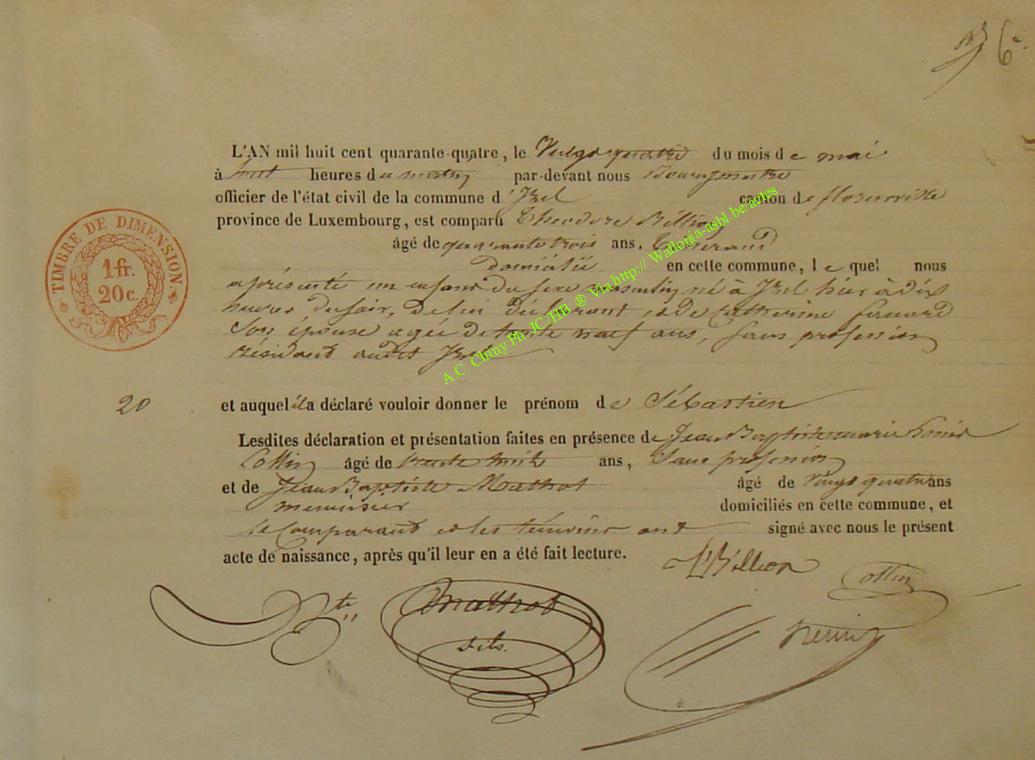 6e
L'AN mil huit cent quarante-quatre, le Vingt quatre du mois de mai
à huit heures du matin par-devant nous Bourgmestre
officier de l'état civil de la commune d'Izel canton de florenville
province de Luxembourg, est comparu Théodore Billion
âgé de quarante trois ans, Tisserand
domicilié en cette commune, lequel nous
a présenté un enfant du sexe masculin, né à Izel hier à dix
heures du soir, de lui déclarant et de Catherine
son épouse agée de trente neuf ans, sans profession
résidant audit Izel
20 et auquel il a déclaré vouloir donner le prénom de Sébastien
Lesdites déclaration et présentation faites en présence de Jean Baptiste marie
Collin âgé de trente huit ans, sans profession
et de Jean Baptiste Mathot âgé de vingt quatre ans
menuisier domiciliés en cette commune, et
le Comparant et les témoins ont signé avec nous le présent
acte de naissance, après qu'il leur en a été fait lecture.
Billion
Collin
Bte Mathot
fils.
TIMBRE DE DIMENSION
1 fr.
20 c.
A.C. Chiny Ph-JC/HB ® Via http://Wallonia-asbl.be/actes